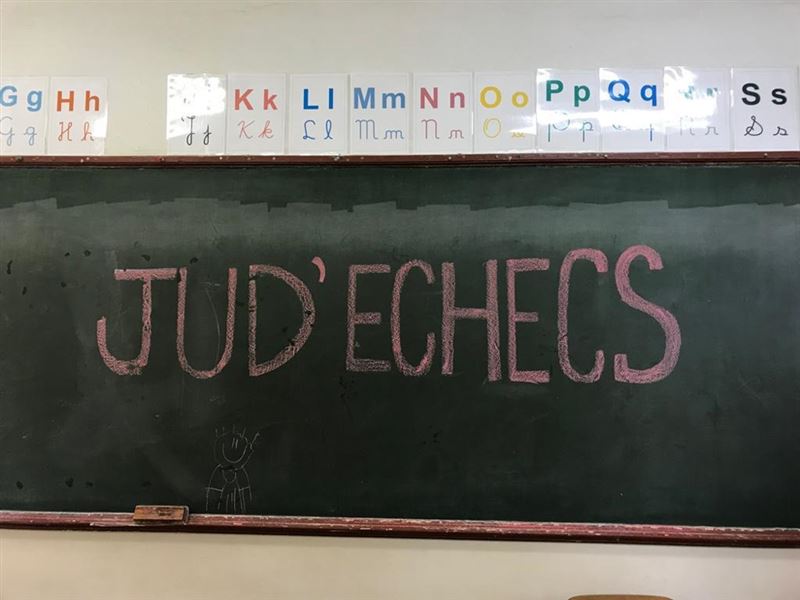 Gg Hh Kk Ll Mm Nn Oo Pp Qq Ss
Gg Hh Jj Kk Ll Mm Nn Oo Pp Qq Rr Ss
JUD'ECHECS